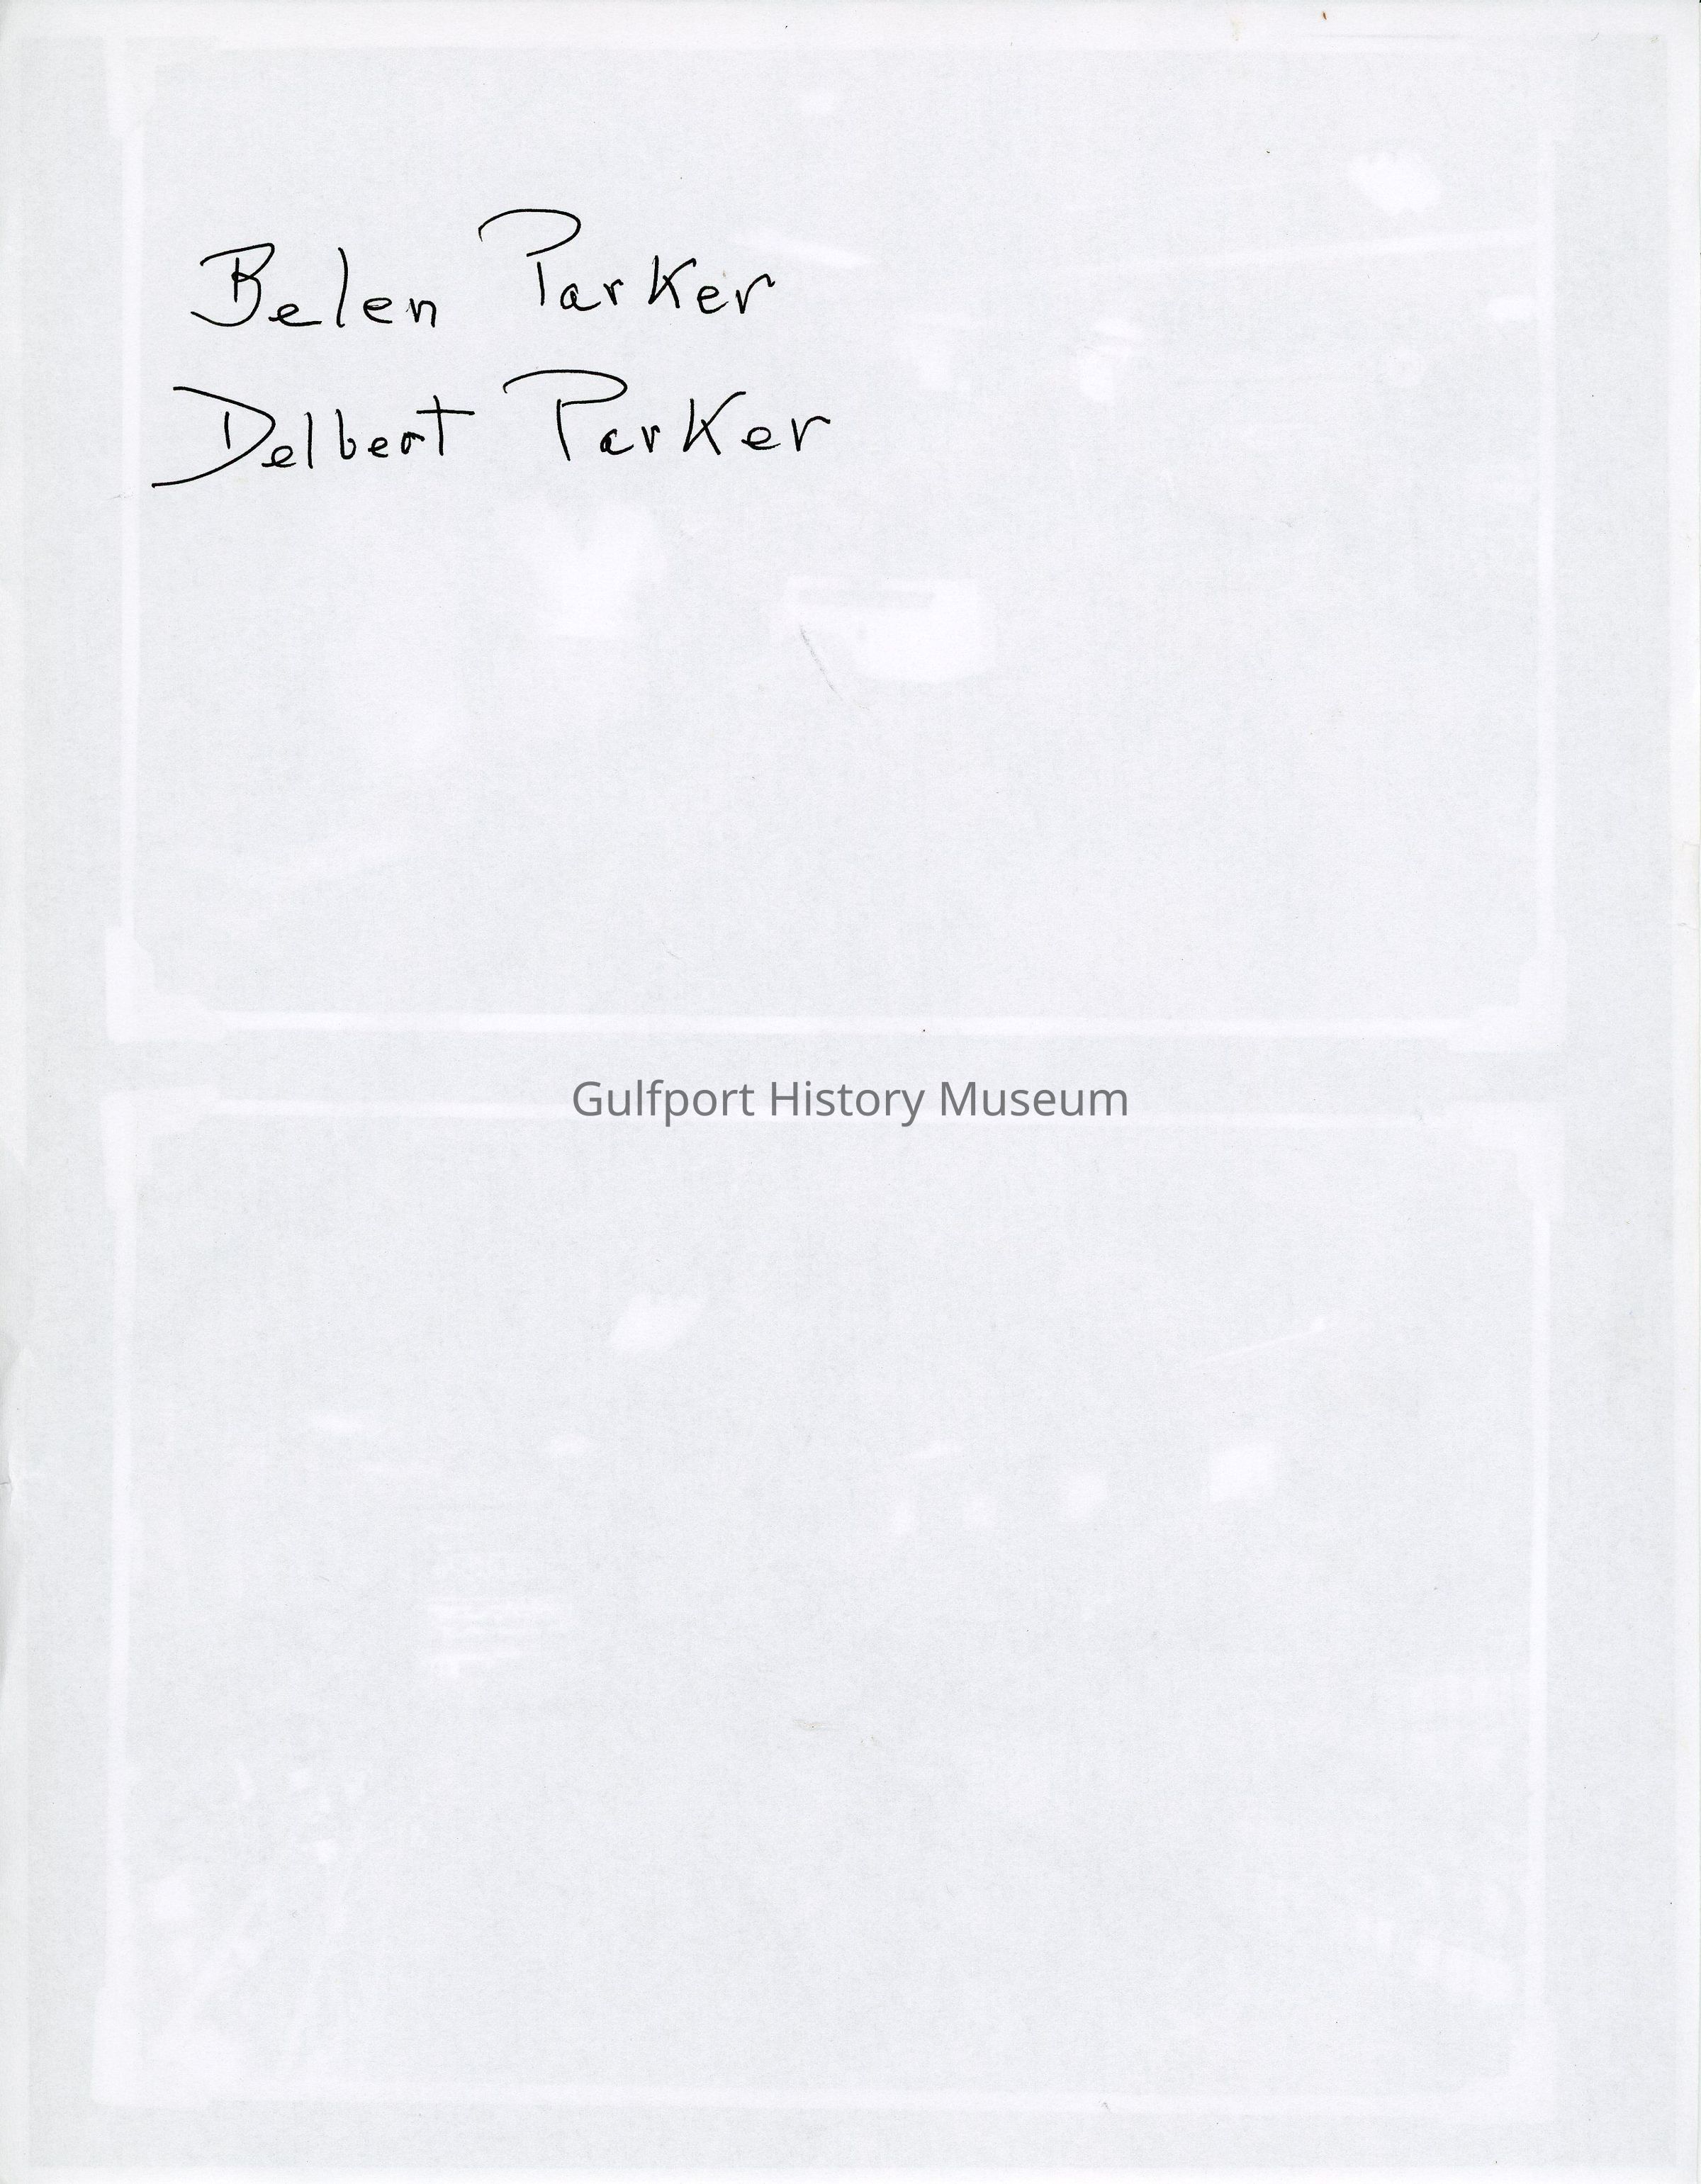 Belen Parker
Delbert Parker
Gulfport History Museum